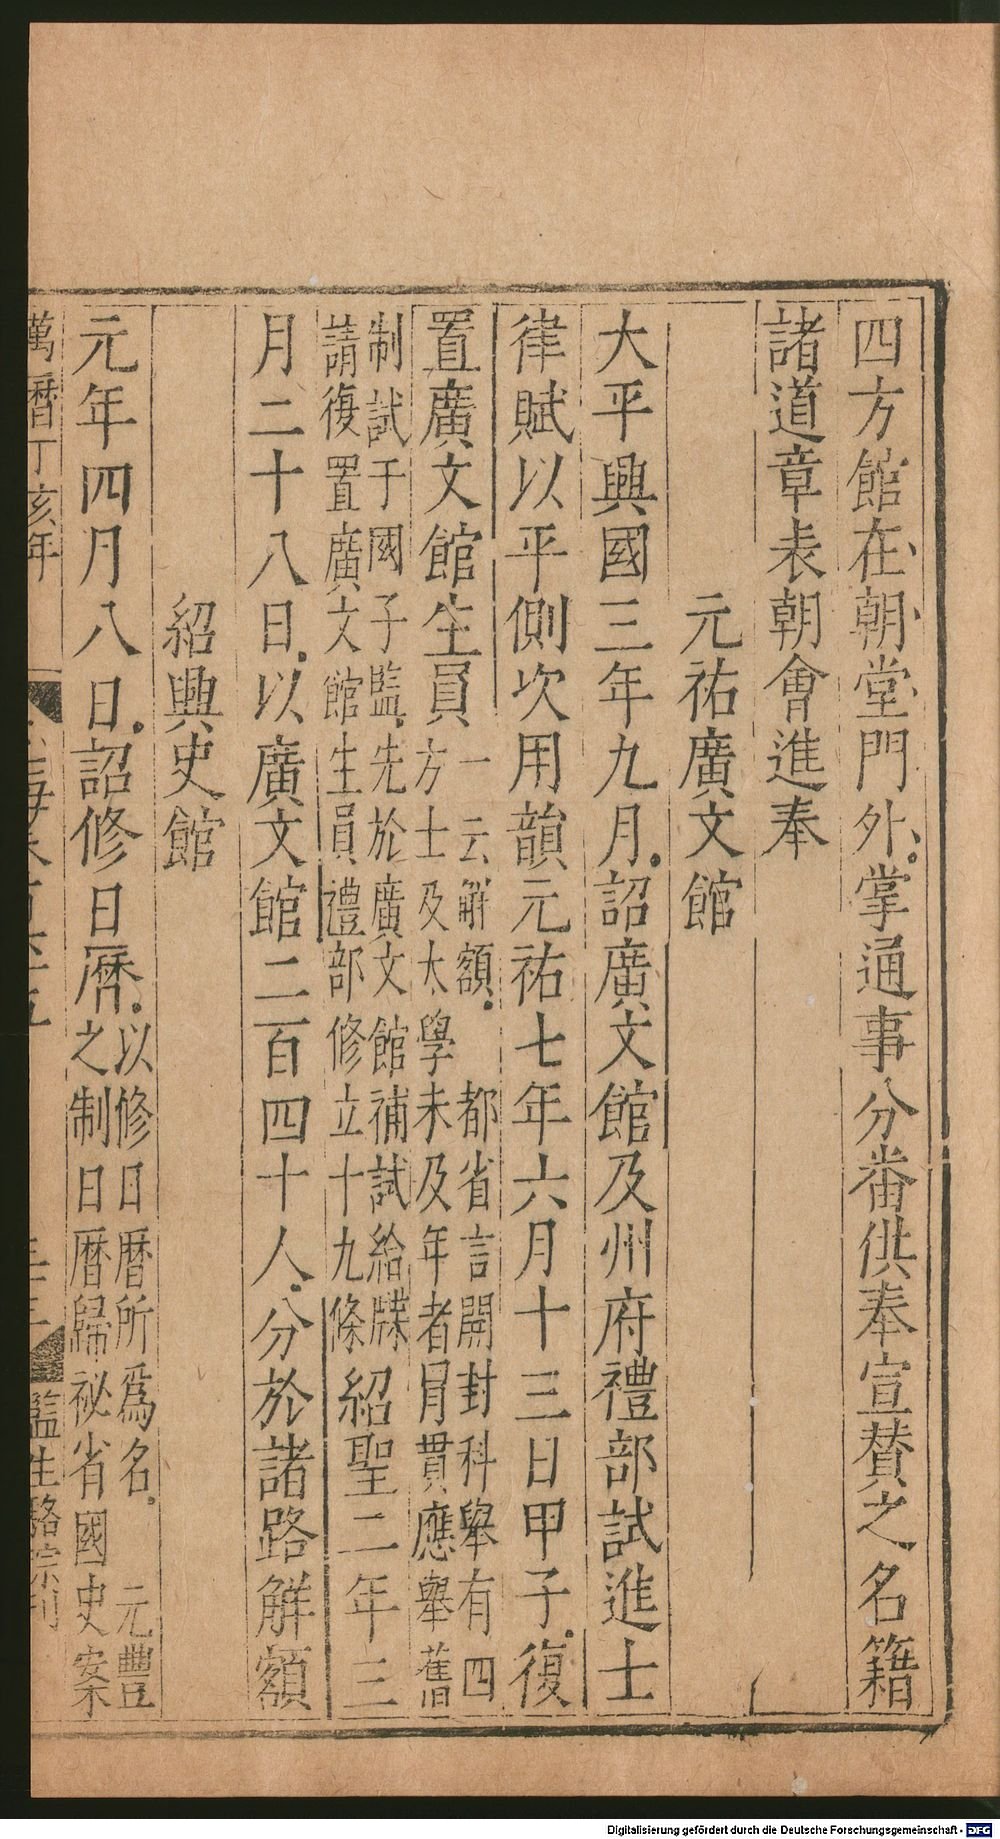 四方館在朝堂門外掌通事分番供奉宣賛之名籍
諸道章表朝會進奉
元祐廣文館
大平興國三年九月詔廣文館及州府禮部試進士
律賦以平側次用韻元祐七年六月十三日甲子復
置廣文館生員
一云解額 都省言開封科舉有四
方士及太學未及年者冐貫應舉舊
制試于國子監先於廣文館補試給牒
請復置廣文館生員禮部修立十九條
紹聖二年三
月二十八日以廣文館二百四十人分於諸路解額
紹興史館
元年四月八日詔修日曆
以修日曆所爲名 元豐
之制日曆歸祕省國史案
萬曆丁亥年
監生駱
Digitalisierung gefördert durch die Deutsche Forschungsgemeinschaft - DFG